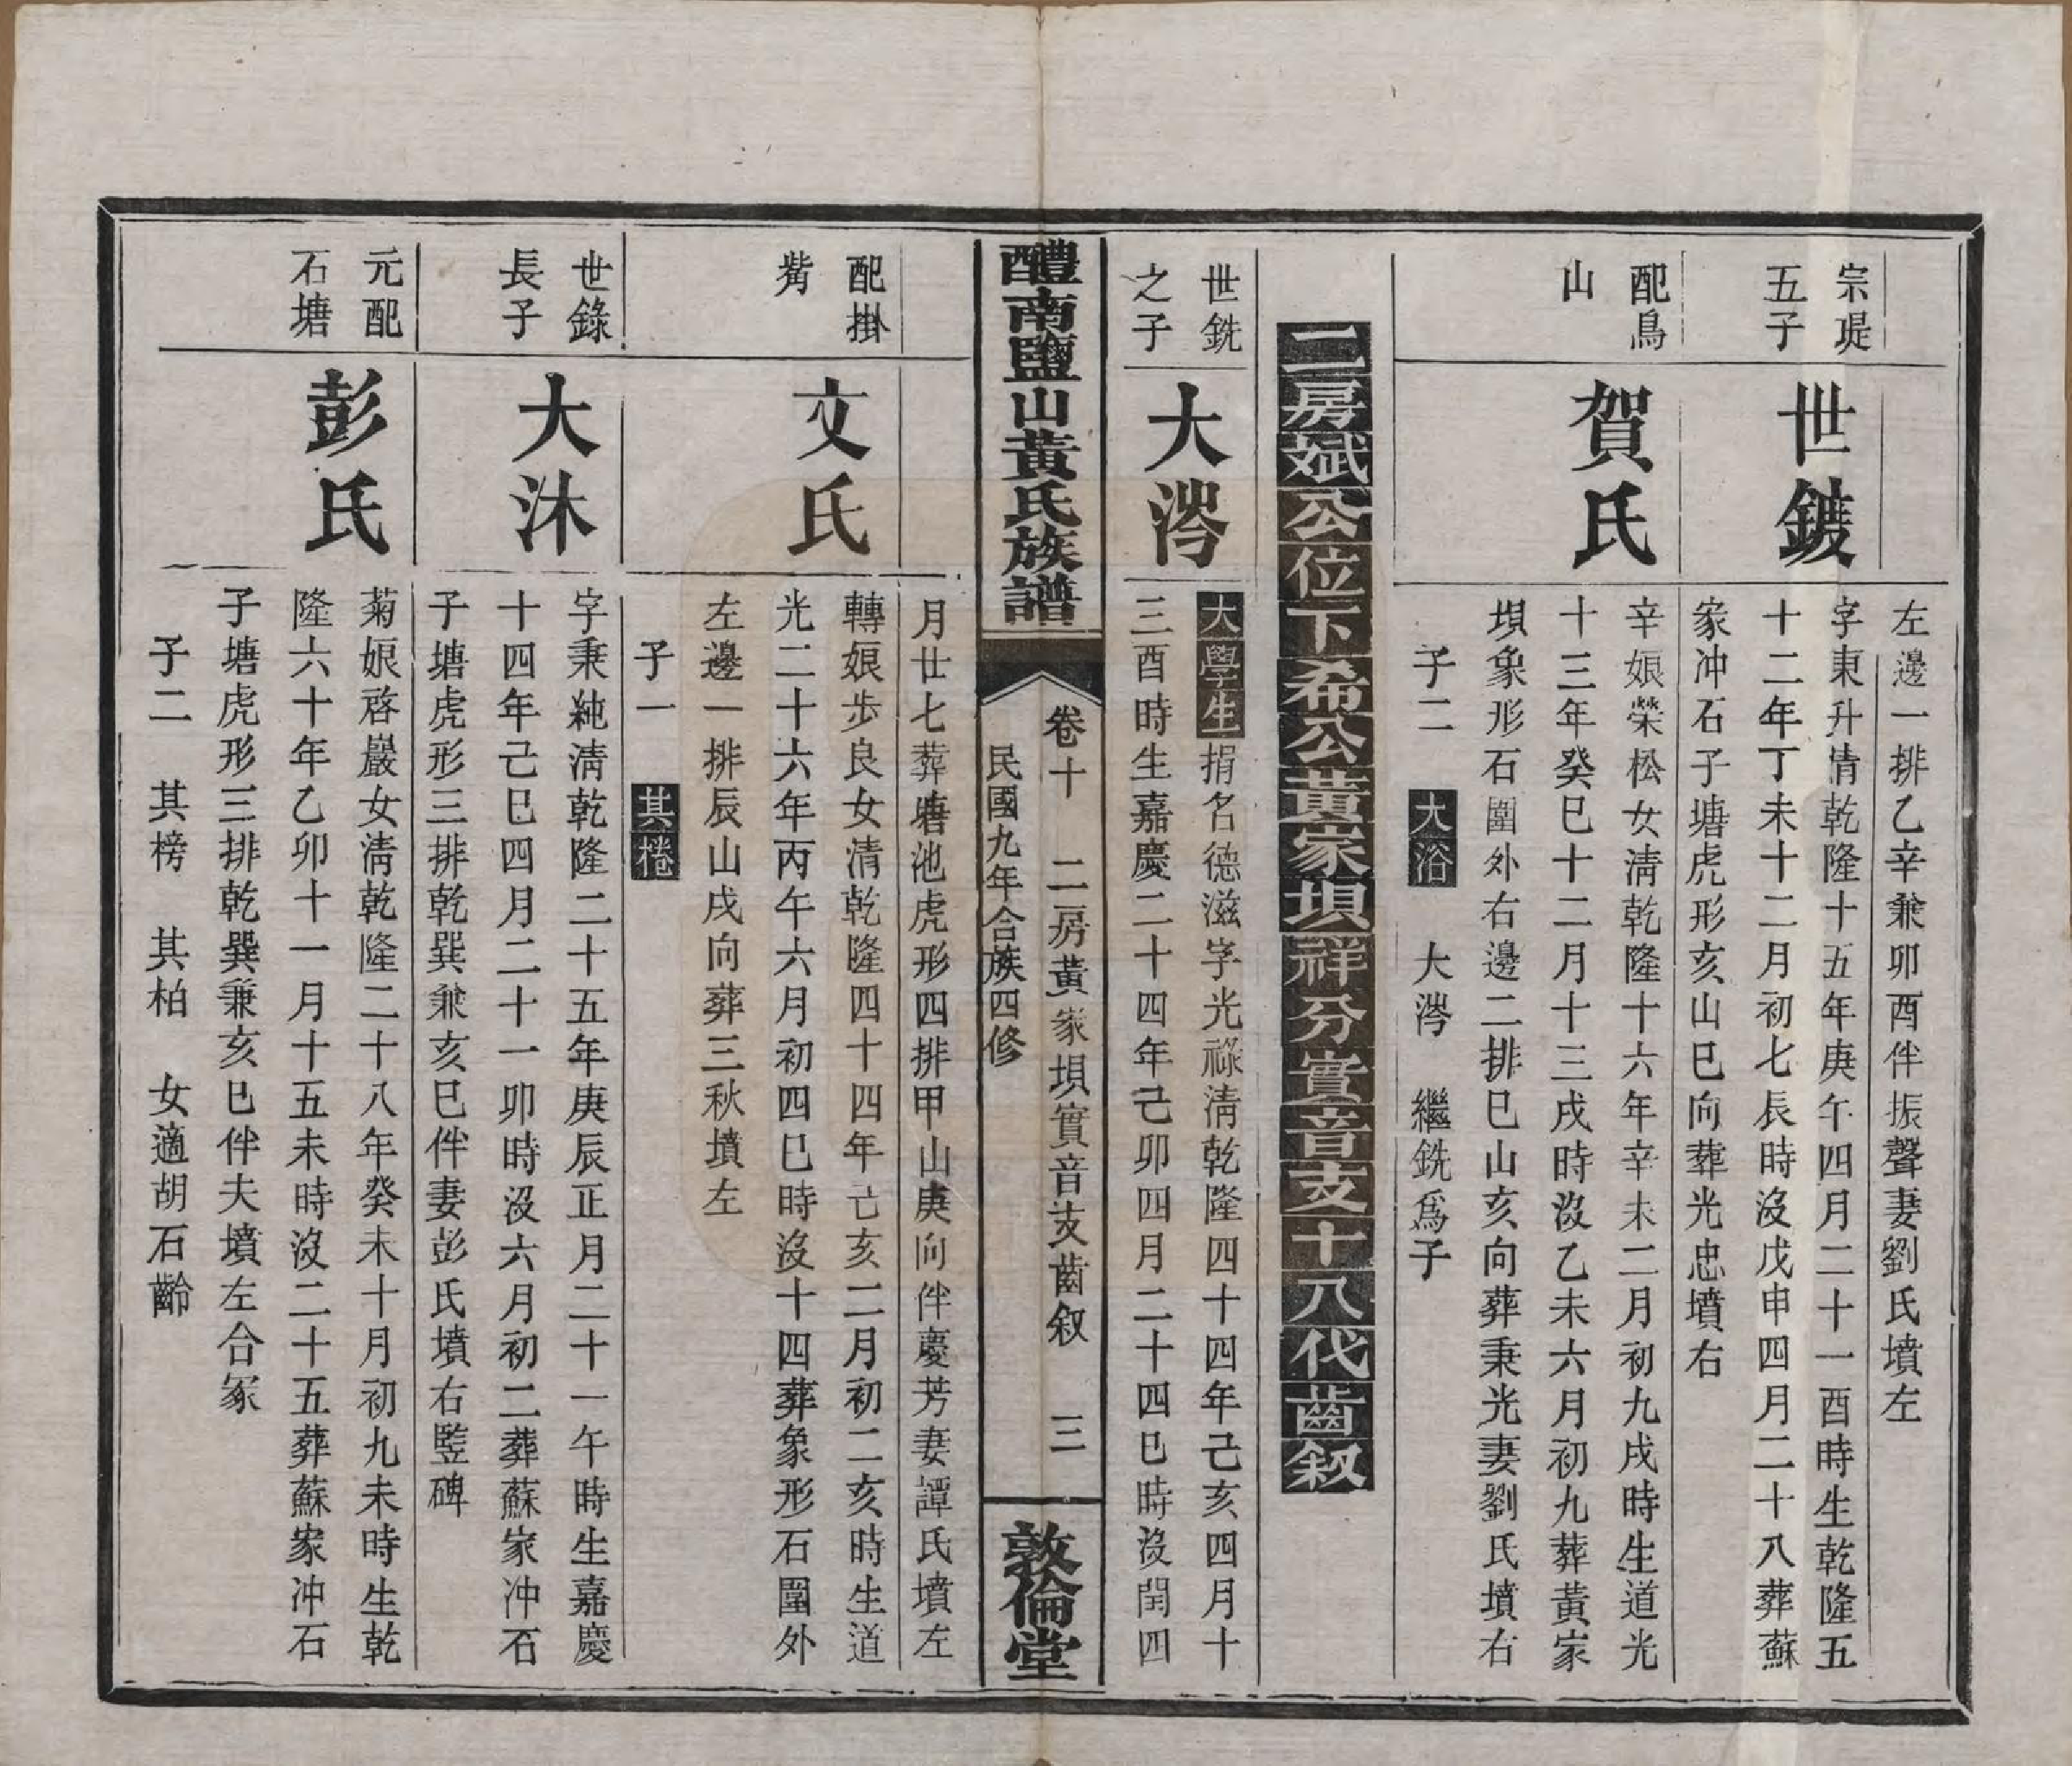 左邊一排乙辛兼卯酉伴振聲妻劉氏墳左
宗堤
五子
世鍍
字東升清乾隆十五年庚午四月二十一酉時生乾隆五
十二年丁未十二月初七辰時沒戊申四月二十八葬蘇
家冲石子塘虎形亥山巳向葬光忠墳右
配鳥
山
賀氏
辛娘榮松女清乾隆十六年辛未二月初九戌時生道光
十三年癸巳十二月十三戌時沒乙未六月初九葬黃家
垻象形石圍外右邊二排巳山亥向葬秉光妻劉氏墳右
子二 大浴 大涔 繼銑爲子
二房斌公位下希公黃家垻祥分實音支十八代齒叙
世銑
之子
大涔
大學生捐名德滋字光祿清乾隆四十四年己亥四月十
三酉時生嘉慶二十四年己卯四月二十四巳時沒閏四
醴南鹽山黃氏族譜
卷十 二房黃家垻實音支齒叙 三
民國九年合族四修
敦倫堂
月廿七葬塘池虎形四排甲山庚向伴慶芳妻譚氏墳左
配掛
觜
文氏
轉娘步良女清乾隆四十四年己亥二月初二亥時生道
光二十六年丙午六月初四巳時沒十四葬象形石圍外
左邊一排辰山戌向葬三秋墳左
子一 其棬
世錄
長子
大沐
字秉純清乾隆二十五年庚辰正月二十一午時生嘉慶
十四年己巳四月二十一卯時沒六月初二葬蘇家冲石
子塘虎形三排乾巽兼亥巳伴妻彭氏墳右竪碑
元配
石塘
彭氏
菊娘啓巖女清乾隆二十八年癸未十月初九未時生乾
隆六十年乙卯十一月十五未時沒二十五葬蘇家冲石
子塘虎形三排乾巽兼亥巳伴夫墳左合冢
子二 其榜 其柏 女適胡石齡